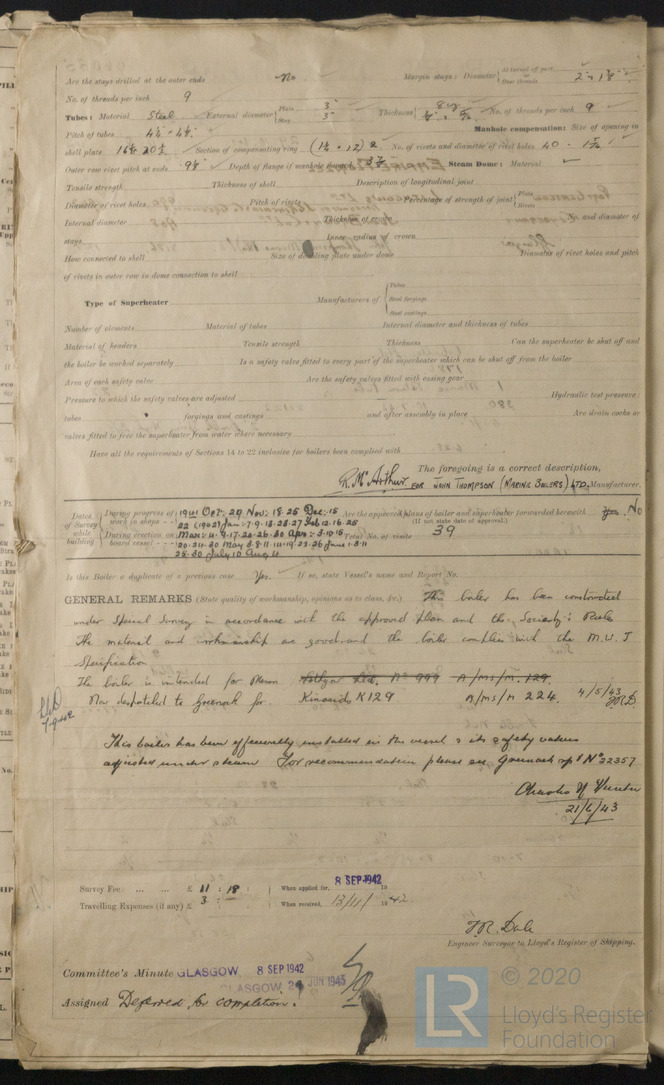 Are the stays drilled at the outer ends No Margin stays: Diameter { At turned off part, Over threads
No. of threads per inch 9
Tubes: Material Steel External diameter { Plain 3" Stay 3" Thickness { 8 wg No. of threads per inch 9
Pitch of tubes Manhole compensation: Size of opening in
shell plate Section of compensating ring No. of rivets and diameter of rivet holes 40
Outer row rivet pitch at ends Depth of flange if manhole flanged Steam Dome: Material
Tensile strength Thickness of shell Description of longitudinal joint
Diameter of rivet holes Pitch of rivets Percentage of strength of joint { Plate Rivets
Internal diameter Thickness of crown No. and diameter of
stays Inner radius of crown
How connected to shell Size of doubling plate under dome Diameter of rivet holes and pitch
of rivets in outer row in dome connection to shell
Type of Superheater Manufacturers of { Tubes Steel forgings Steel castings
Number of elements Material of tubes Internal diameter and thickness of tubes
Material of headers Tensile strength Thickness Can the superheater be shut off and
the boiler be worked separately Is a safety valve fitted to every part of the superheater which can be shut off from the boiler
Area of each safety valve Are the safety valves fitted with easing gear
Pressure to which the safety valves are adjusted Hydraulic test pressure:
tubes forgings and castings and after assembly in place Are drain cocks or
valves fitted to free the superheater from water where necessary
Have all the requirements of Sections 14 to 22 inclusive for boilers been complied with
The foregoing is a correct description,
R. McArthur FOR JOHN THOMPSON (MARINE BOILERS) LTD. Manufacturer.
Dates of Survey while building { During progress of work in shops - - 1941 Oct: 29 Nov: 18. 25 Dec: 15
22 (1942) Jan: 7. 9. 13. 23. 27 Feb 12. 16. 25
During erection on board vessel - - - Mar: 4. 9. 17. 20. 26. 30 Apr: 3. 10. 15
20. 24. 30 May 5. 8. 11. 14. 19 23. 26 June 1. 3. 11
25. 30 July 10 Aug 4
Are the approved plans of boiler and superheater forwarded herewith No
(If not state date of approval.)
Total No. of visits 39
Is this Boiler a duplicate of a previous case Yes. If so, state Vessel's name and Report No.
GENERAL REMARKS (State quality of workmanship, opinions as to class, &c.) This boiler has been constructed
under Special Survey in accordance with the approved plan and the Society's Rules
The material and workmanship are good and the boiler complies with the M.W.T
Specification
The boiler is intended for Messrs No 999 A/MS/M. 129.
Now dispatched to Greenock for Kincaid K129 A/MS/M 224. 4/5/43
This boiler has been efficiently installed in the vessel & its safety valves
adjusted under steam For recommendation please see Greenock rpt No 22357
21/6/43
Survey Fee ... ... £ 11 : 18 : When applied for, 8 SEP 1942
Travelling Expenses (if any) £ 3 : : When received, 13/11/1942
J.R. Dale
Engineer Surveyor to Lloyd's Register of Shipping.
Committee's Minute GLASGOW 8 SEP 1942
GLASGOW 2 JUN 1943
Assigned Deferred for completion.
LR © 2020
Lloyd's Register
Foundation